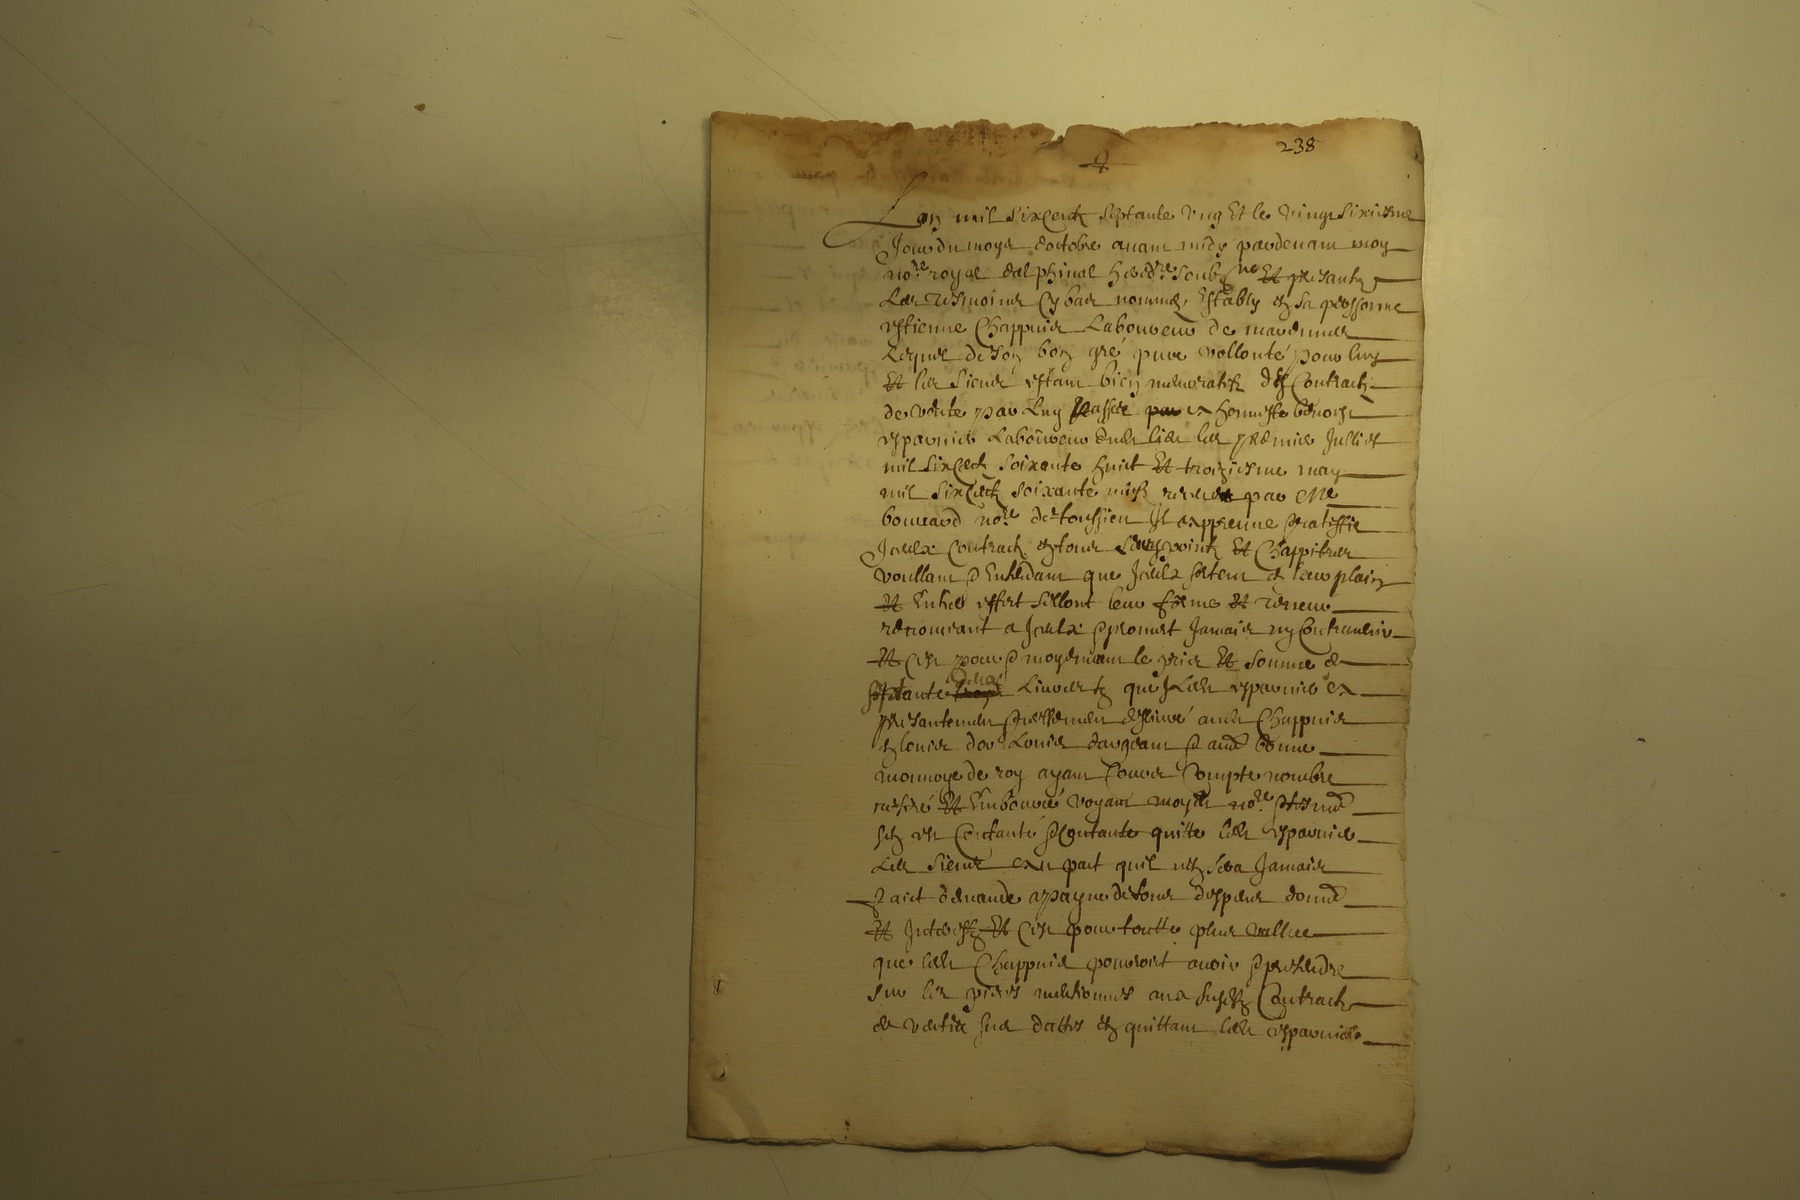 238
Lan mil sixcentz septante ung Et le vingt sixiesme
Jour du moys doctobre avant midy pardevant moy
no.re royal dalphinal hered.re soubz.ne Et presantz
Les tesmoins cy bas nommes, establi en sa personne
estienne Chappuis Laboureur de marennes
Lequel de son bon gré pure vollonté pour luy
Et les siens estant bien memoratifz des Contractz
de vente par Luy passés a honneste benoist
esparnier Laboureur dud lieu les premier Julliet
mil sixcentz soixante huict Et troiziesme may
mil sixcentz soixante neufz receus par Me
bouvard no.re de toussieu Il appreuve ratiffie
Jceulx Contractz en tous Leurs pointz Et Chappitres
voullant Entendant que Jceulx sortent a leur plain
Et Entier effect sellont leur forme Et teneur
renoncant a Jceulx promet Jamais ny Contrevenir
Et Cest pour moyenant le prix Et somme de
septante deux Livres que Led esparnier a
presantement reellement deslivré aud Chappuis
en louis dor Louis dargeant aud bonne
monnoye de roy ayant Cours Compte nombre
retiré Et Emboursé voyant moyd no.re tesmo
sen est Contanté Contante quitte led esparnier
Les siens au pact quil nen sera Jamais
faict demande a payne de tous despens
Et Jnterestz Et Cest pour toutte plus vallue
que led Chappuis pourroit avoir pretendre
sur les pieces mentionnes aux susd Contractz
de vente sus dattes en quittant led esparnier